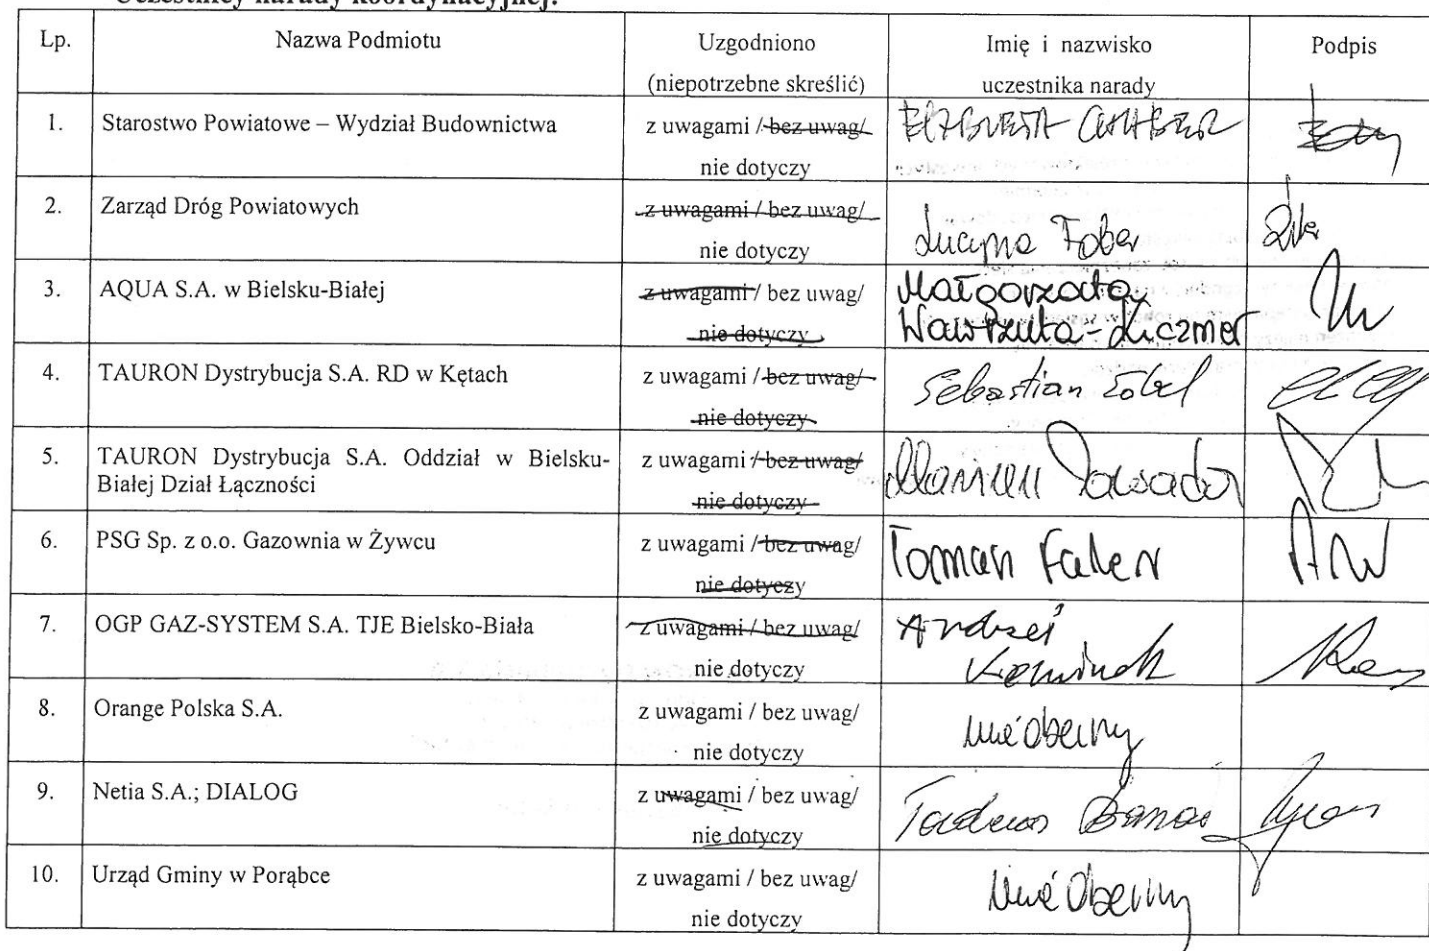 Uczestnicy narady koordynacyjnej:
Lp. Nazwa Podmiotu Uzgodniono (niepotrzebne skreślić) Imię i nazwisko uczestnika narady Podpis
1. Starostwo Powiatowe – Wydział Budownictwa z uwagami / bez uwag/
nie dotyczy
2. Zarząd Dróg Powiatowych z uwagami / bez uwag/
nie dotyczy Lucyna Fober
3. AQUA S.A. w Bielsku-Białej z uwagami / bez uwag/ Małgorzata
nie dotyczy
4. TAURON Dystrybucja S.A. RD w Kętach z uwagami / bez uwag/ Sebastian
nie dotyczy
5. TAURON Dystrybucja S.A. Oddział w Bielsku- z uwagami / bez uwag/
Białej Dział Łączności nie dotyczy
6. PSG Sp. z o.o. Gazownia w Żywcu z uwagami / bez uwag/
nie dotyczy
7. OGP GAZ-SYSTEM S.A. TJE Bielsko-Biała z uwagami / bez uwag/ Andrzej
nie dotyczy
8. Orange Polska S.A. z uwagami / bez uwag/ nieobecny
nie dotyczy
9. Netia S.A.; DIALOG z uwagami / bez uwag/ Tadeusz
nie dotyczy
10. Urząd Gminy w Porąbce z uwagami / bez uwag/ nieobecny
nie dotyczy